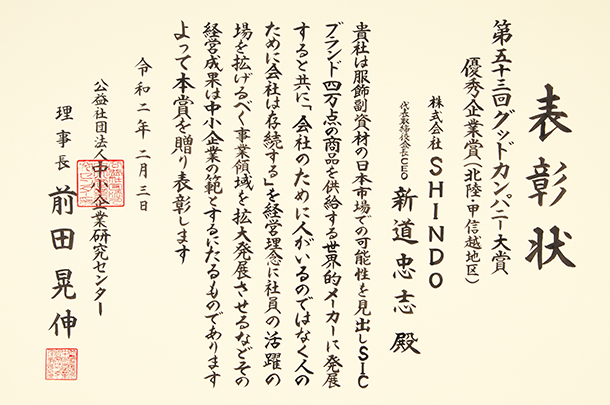 表彰状
第五十三回グッドカンパニー大賞
優秀企業賞(北陸・甲信越地区)
株式会社SHINDO
代表取締役会長CEO 新道忠志 殿
貴社は服飾副資材の日本市場での可能性を見出しSIC
ブランド四万点の商品を供給する世界的メーカーに発展
すると共に「会社のために人がいるのではなく人の
ために会社は存続する」を経営理念に社員の活躍の
場を拡げるべく事業領域を拡大発展させるなどその
経営成果は中小企業の範とするにたるものであります
よって本賞を贈り表彰します
令和二年二月三日
公益社団法人中小企業研究センター
理事長 前田晃伸